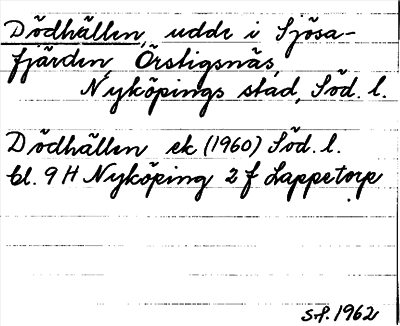 Dödhällen, udde i Sjösa-
fjärden, Örstigsnäs,
Nyköpings stad, Söd. l.
Dödhällen ek (1960) Söd. l.
bl. 9 H Nyköping 2 f Lappetorp
S.f. 1962